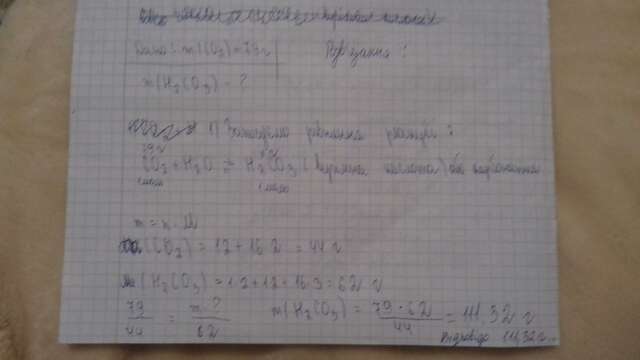 Дано: m(CO₂)=79 г
Розв'язання:
m(H₂CO₃) - ?
1) Запишемо рівняння реакції:
79 г
CO₂ + H₂O ⇄ H₂CO₃ (вугільна кислота / або карбонатна
1 моль 1 моль
m = n · M
(CO₂) = 12 + 16 · 2 = 44 г
(H₂CO₃) = 1·2 + 12 + 16·3 = 62 г
79/44 = m ?/62 m(H₂CO₃) = 79 · 62/44 = 111,32 г
Відповідь 111,32 г